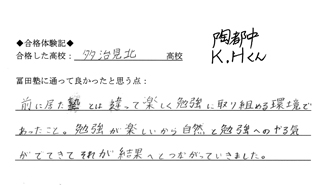 ◆合格体験記◆
陶都中
合格した高校: 多治見北 高校
K.Hくん
冨田塾に通って良かったと思う点:
前に居た塾とは違って楽しく勉強に取り組める環境で
あったこと。勉強が楽しいから自然と勉強へのやる気
がでてきてそれが結果へとつながっていきました。